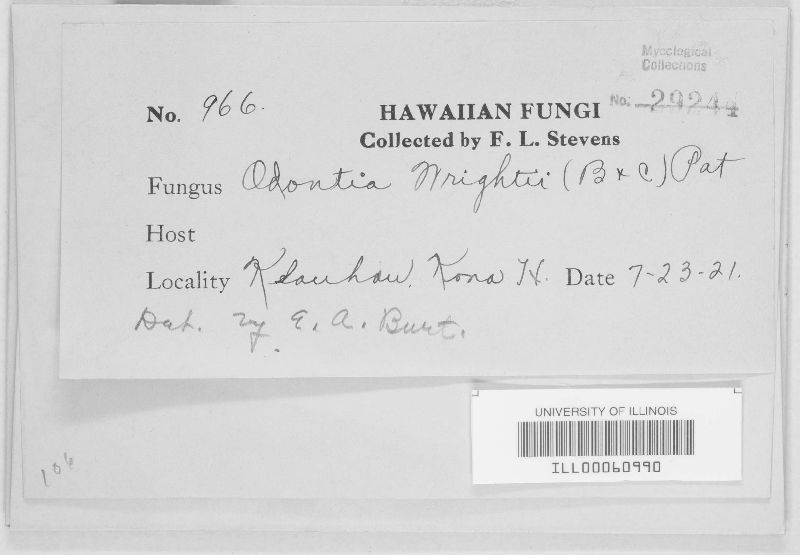 Mycological
Collections
No. 29244
No. 966.
HAWAIIAN FUNGI
Collected by F. L. Stevens
Fungus Odontia Wrightii (B & C) Pat
Host
Locality Kona H. Date 7-23-21.
Det. by E. A. Burt.
UNIVERSITY OF ILLINOIS
ILL00060990
106